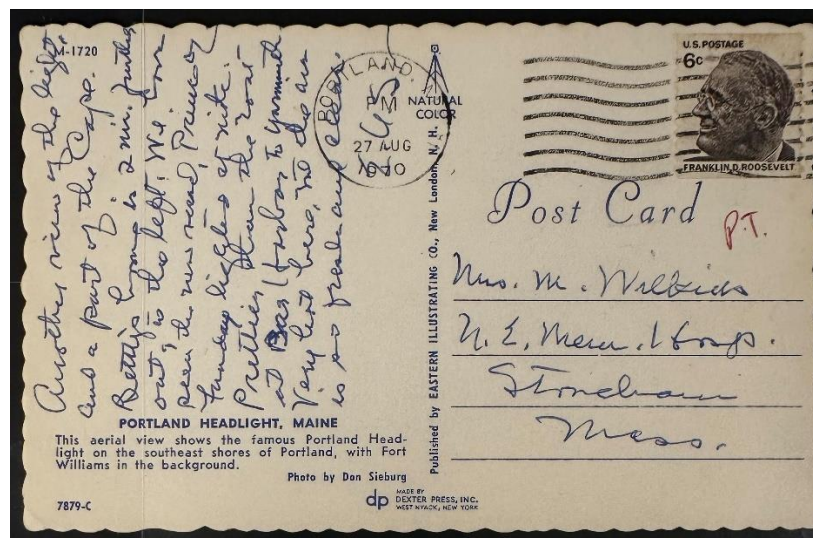 M-1720
Another view of the light,
and a part of the Cape.
Betty's home is 2 mi. further
out, to the left. We have
seen the new road,
Sunday lighted at nite.
Prettier than the
at Bar Harbor to Yarmouth
Very hot here, but the air
is so fresh and clean.
PORTLAND HEADLIGHT, MAINE
This aerial view shows the famous Portland Head-
light on the southeast shores of Portland, with Fort
Williams in the background.
Photo by Don Sieburg
7879-C
PORTLAND,
PM
27 AUG
NATURAL
COLOR
Published by EASTERN ILLUSTRATING CO., New London, N. H.
dp
MADE BY
DEXTER PRESS, INC.
WEST NYACK, NEW YORK
U.S. POSTAGE
6c
FRANKLIN D. ROOSEVELT
Post Card
P.T.
Mrs. M. Wilkins
N. E. Mem. Hosp.
Stoneham
Mass.